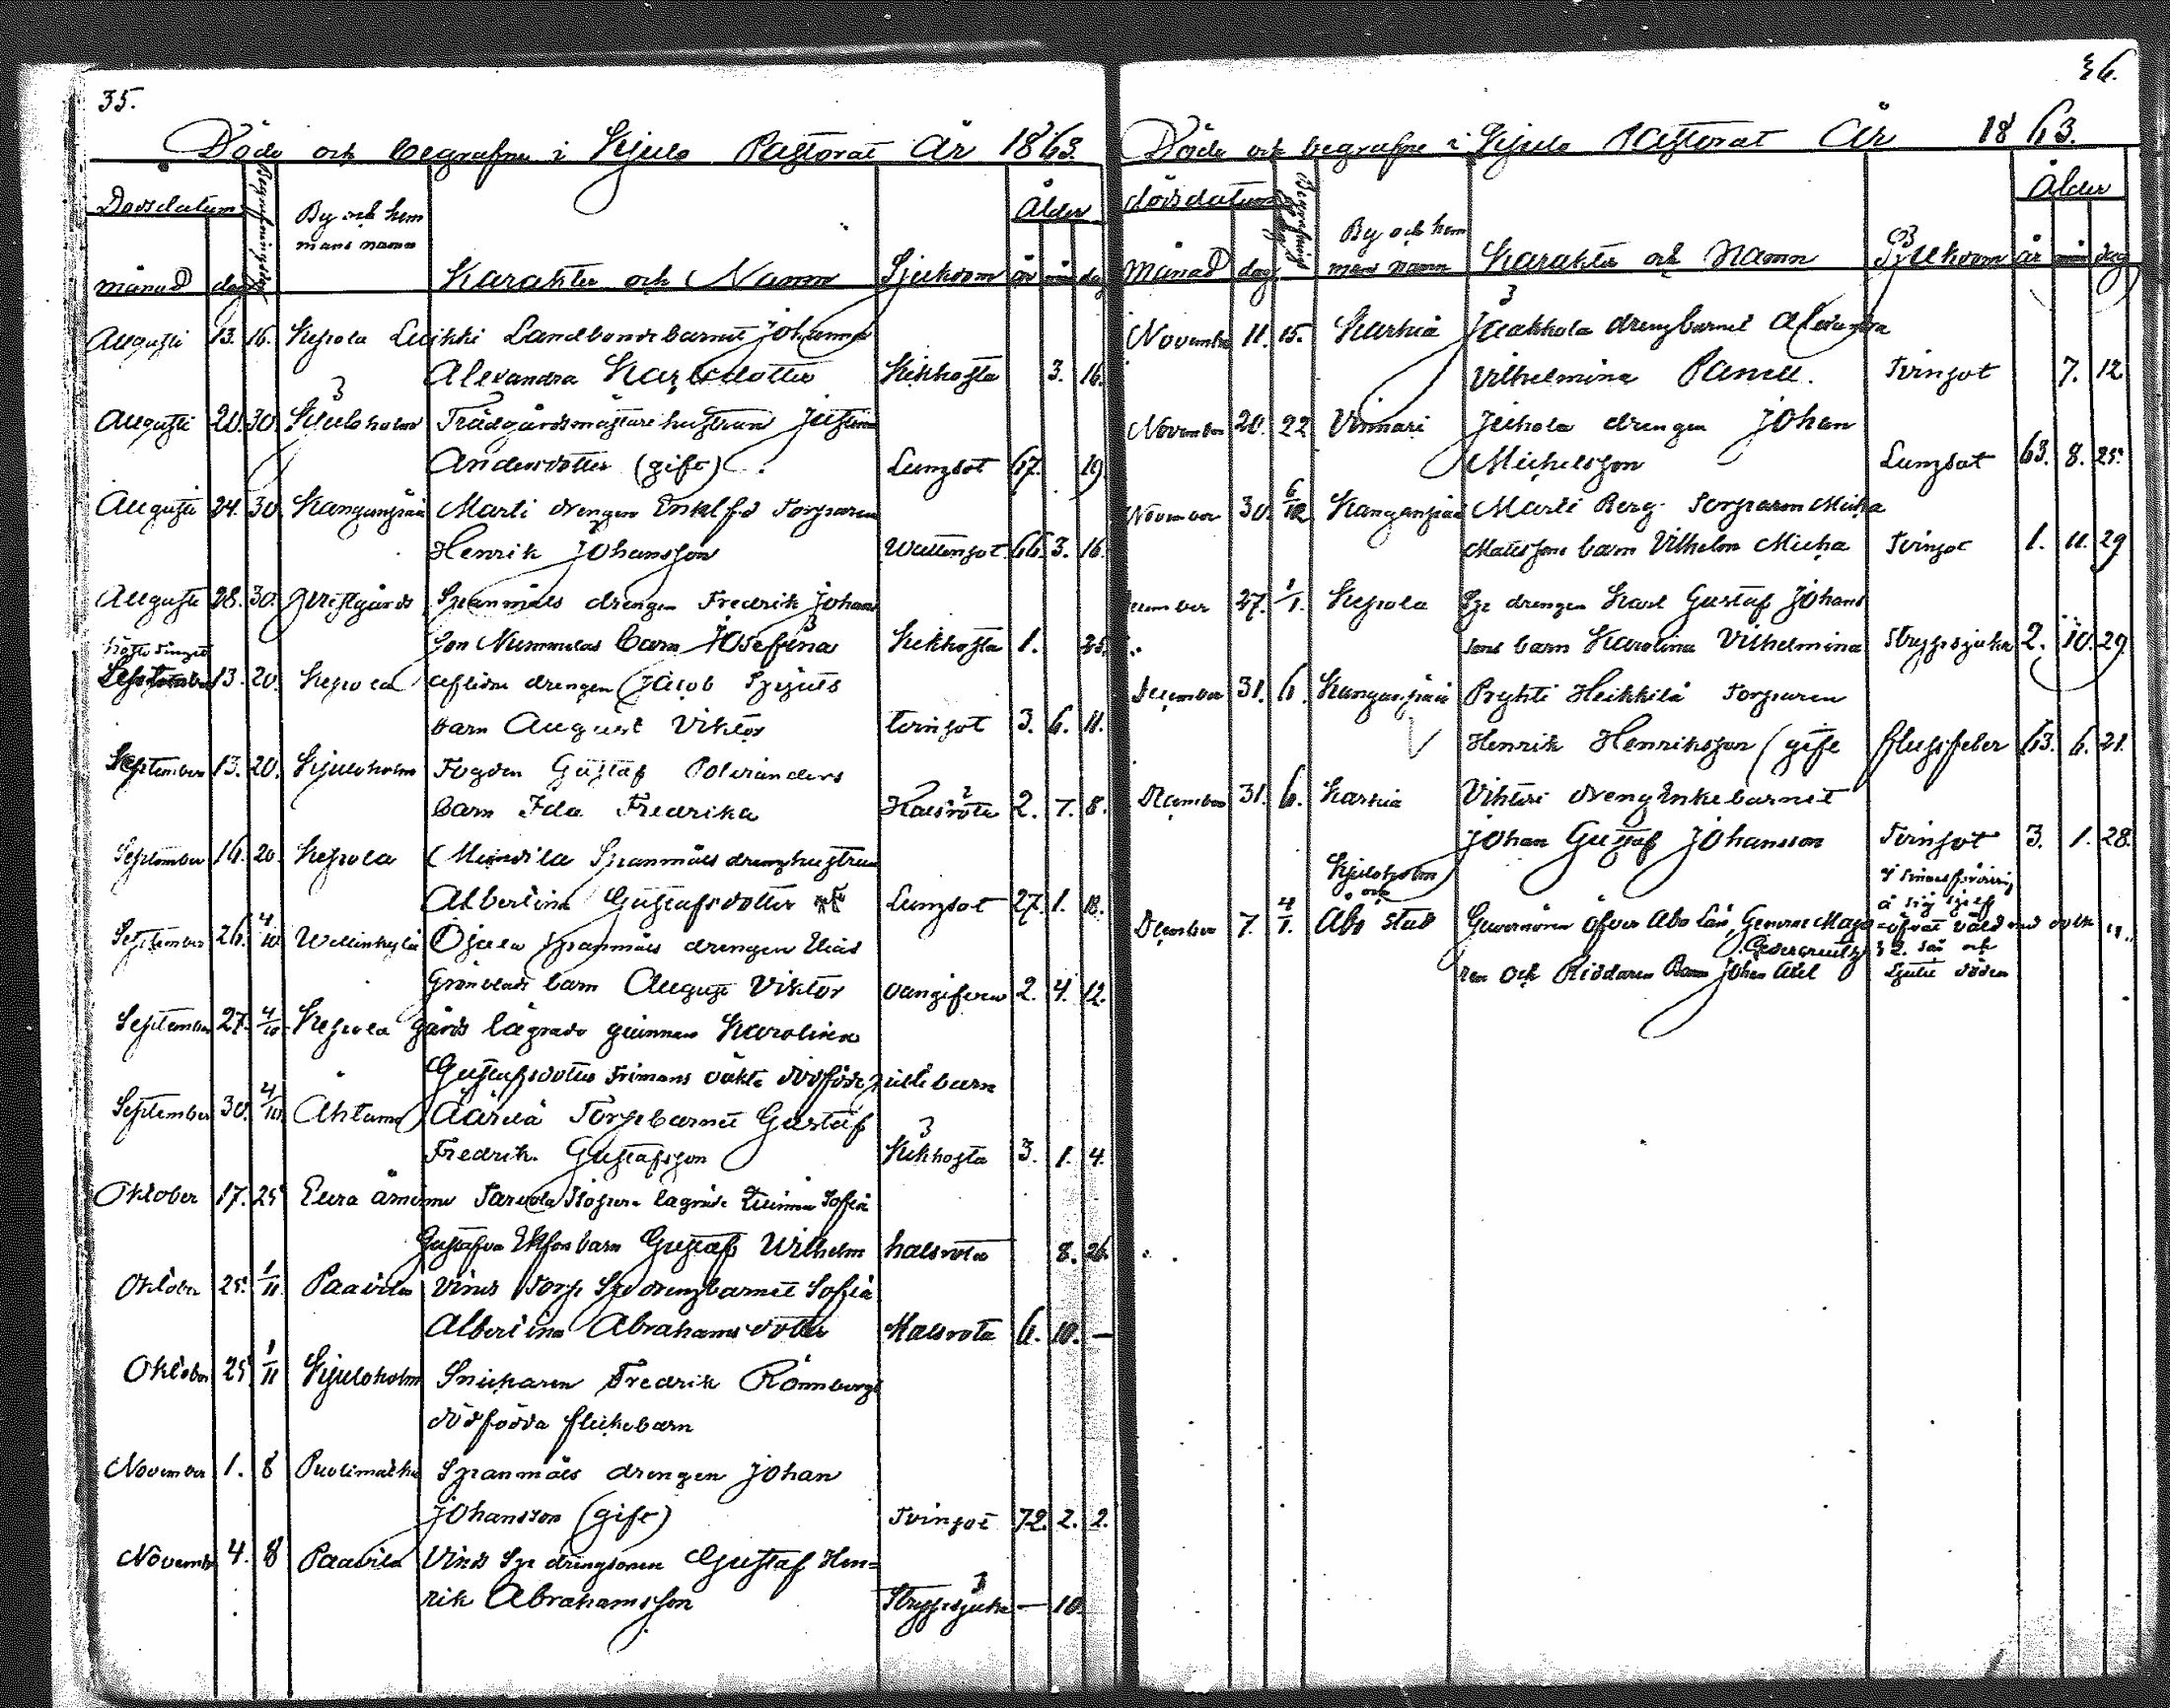 35.
Döde och begrafne i Kjulo Pastorat År 1863.
Dödsdatum By och hem Ålder
mans namn
månad dag Karakter och Namn Sjukdom år mån dag
Augusti 13. 16. Kepola Landbondebarnet Johanna
Alexandra Karlsdotter Kikhosta 3. 16.
Augusti 20. 30. Kjuloholm Trädgårdsmästare hustrun Justina
Andersdotter (gift) Lungsot 67. 19.
Augusti 24. 30. Kanganpää Marti drengen Enkl fd Torparen
Henrik Johansson Wattensot 66. 3. 16.
Augusti 28. 30. Spanmåls drengen Fredrik Johans
son Nummelas barn Josefina Kikhosta 1. 25.
September 13. 20. Kepola aflidne drengen Jacob
barn August Viktor tvinsot 3. 6. 11.
September 13. 20. Kjuloholm Fogden Gustaf Polviander s
barn Ida Fredrika Halsröta 2. 7. 8.
September 16. 20. Kepola Spanmåls drenghustrun
Albertina Gustafsdotter Lungsot 27. 1. 18.
September 26. 4/10 Wellinkylä Ojala Spanmåls drengen Elias
Grönblads barn August Viktor vangifven 2. 4. 12.
September 27. 4/10. Kepola gårds lägrade quinnan Karolina
Gustafsdotter Frimans oäkta dödfödde barn
September 30. 4/10 Ahtamo Äärilä Torpebarnet Gustaf
Fredrik Gustafsson Kikhosta 3. 1. 4.
Oktober 17. 25 Eura lägrade Quinnan Sofia
barn Gustaf Wilhelm halsröta 8. 26.
Oktober 25. 1/11. Paavila Vinis Torp Sp drengbarnet Sofia
Albertina Abrahamsdotter Halsröta 6. 10. —
Oktober 25 1/11 Kjuloholm Snickaren Fredrik Rönnbergs
dödfödda flickebarn
November 1. 8 Puolimatka Spanmåls drengen Johan
Johansson (gift) Tvinsot 72. 2. 2.
November 4. 8 Paavila Vinis Sp drengsonen Gustaf Hen=
rik Abrahamsson Strypsjuka — 10.
36.
Döde och begrafne i Kjulo Pastorat År 1863.
dödsdatum By och hem Ålder
månad dag mans namn Karakter och Namn Sjukdom år mån dag
November 11. 15. Karhia Jaakkola drengbarnet Alexandra
Vilhelmina Panell. Tvinsot 7. 12
November 20. 22 Vinnari Jeikola drengen Johan
Michelsson Lungsot 63. 8. 25.
November 30. 6/12 Kanganpää Marti Berg Torparen Micha
Matssons barn Vilhelm Micha Tvinsot 1. 11. 29
December 27. 1/1. Kepola Sp drengen Karl Gustaf Johans
sons barn Karolina Vilhelmina Strypsjuka 2. 10. 29
December 31. 6. Kanganpää Pryhti Heikkilä Torparen
Henrik Henriksson (gift flussfeber 63. 6. 21.
December 31. 6. Karhia Vihteri drengEnkebarnet
Johan Gustaf Johansson Tvinsot 3. 1. 28.
Kjuloholm i sinnesförvirring
och å sig sjelf
December 7. 4/1. Åbo stad Guvernören öfver Åbo Län, General Majo= öfvat våld med dolk
Cedercreutz sår och
ren och Riddaren Johan Axel ljutit döden